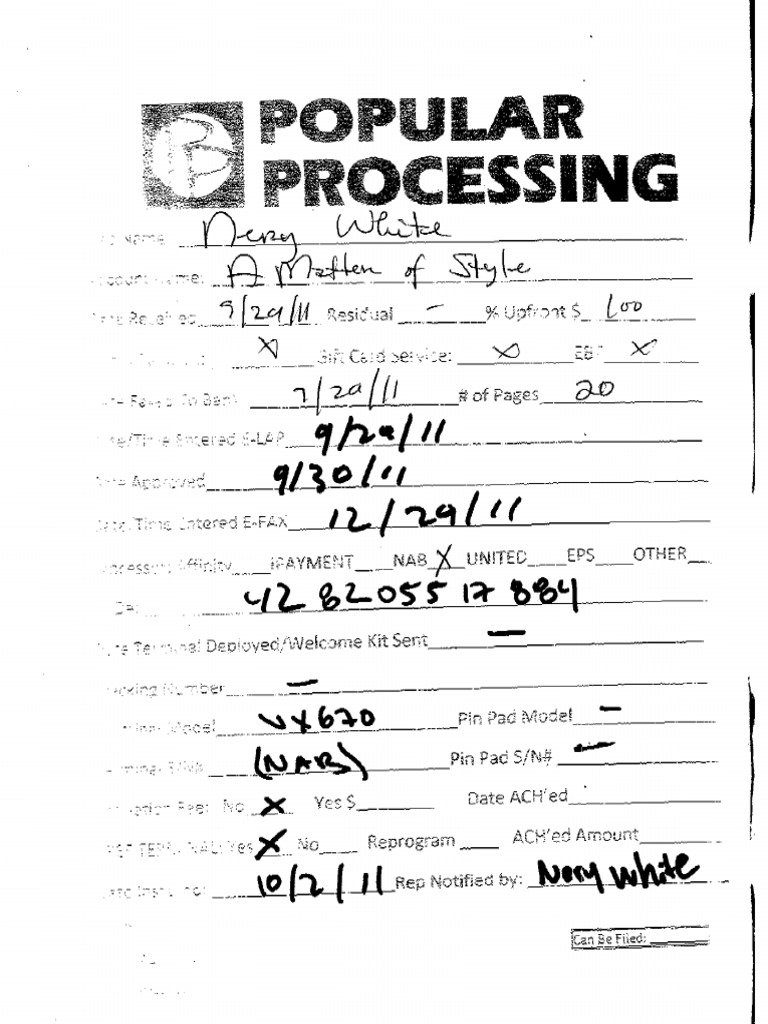 POPULAR
PROCESSING
Name Nery White
Account Name: A Matter of Style
Date Received 9/29/11 Residual - % Upfront $ 100
X Gift Card Service: X EBT X
Date Faxed To Bank 9/29/11 # of Pages 20
Date/Time Entered E-LAP 9/29/11
Date Approved 9/30/11
Date/Time Entered E-FAX 12/29/11
Processor Affinity IPAYMENT NAB X UNITED EPS OTHER
42 82055 17 884
Date Terminal Deployed/Welcome Kit Sent -
Tracking Number -
Terminal Model VX670 Pin Pad Model -
Terminal S/N# (NAB) Pin Pad S/N# -
Fee: No X Yes $ Date ACH'ed
Yes X No Reprogram ACH'ed Amount
10/2/11 Rep Notified by: Nery White
Can Be Filed: